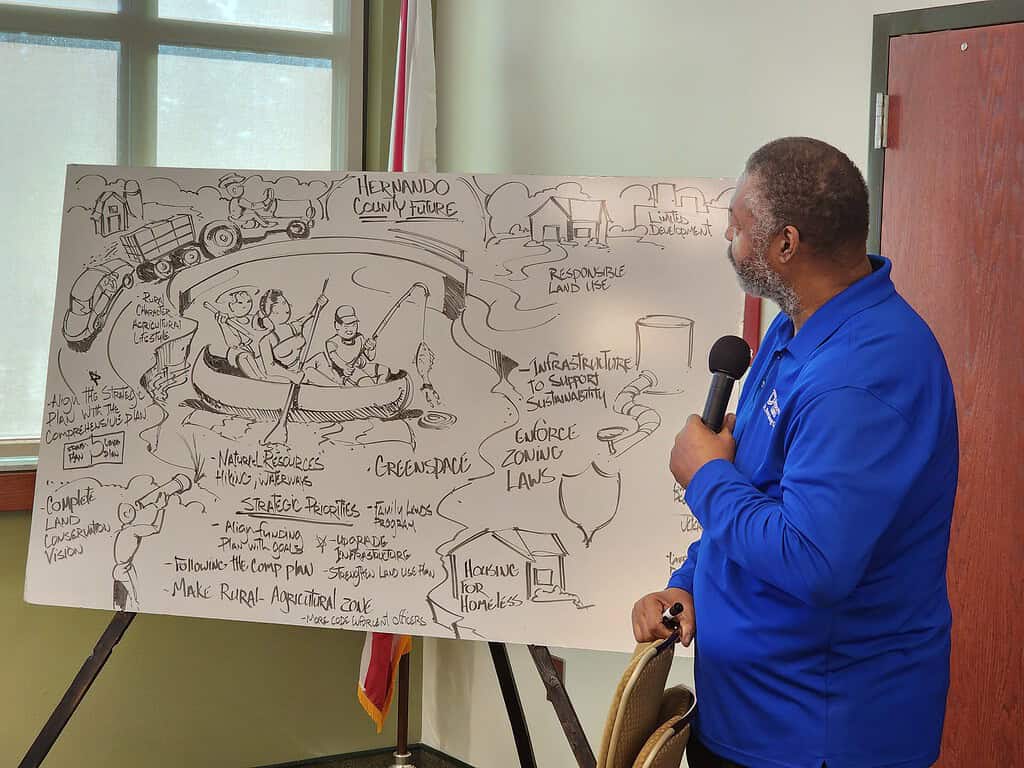 HERNANDO
COUNTY FUTURE
LIMITED
DEVELOPMENT
RESPONSIBLE
LAND USE
RURAL
CHARACTER
AGRICULTURAL
LIFESTYLE
-ALIGN THE STRATEGIC
PLAN WITH THE
COMPREHENSIVE PLAN
PLAN
PLAN
-INFRASTRUCTURE
TO SUPPORT
SUSTAINABILITY
ENFORCE
ZONING
LAWS
-NATURAL RESOURCES
HIKING, WATERWAYS
-GREENSPACE
-COMPLETE
LAND
CONSERVATION
VISION
STRATEGIC PRIORITIES
-ALIGN FUNDING
PLAN WITH GOALS
-FOLLOWING THE COMP PLAN
-MAKE RURAL-AGRICULTURAL ZONE
-FAMILY LANDS
PROGRAM
-UPGRADE
INFRASTUCTURE
-STRENGTHEN LAND USE PLAN
-MORE CODE ENFORCEMENT OFFICERS
HOUSING
FOR
HOMELESS